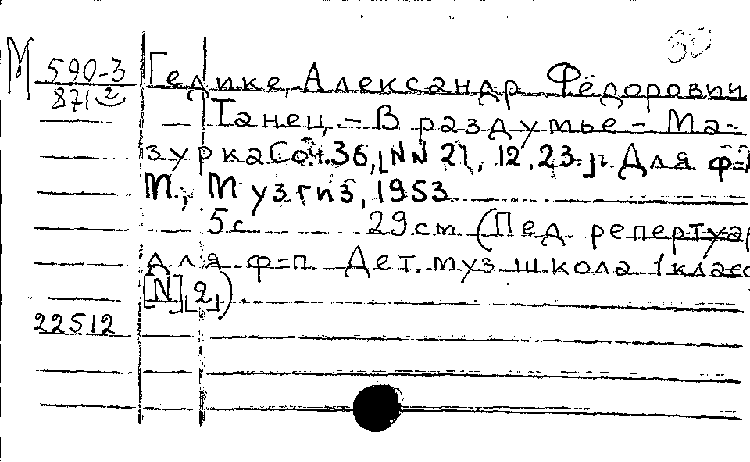 50
М 590-3 Гедике, Александр Фёдорович
871 2 Танец, – В раздумье – Ма-
зурка Соч. 36, [NN 21, 12, 23.] Для ф-п
М., Музгиз, 1953
5с 29cm (Пед. репертуар
для ф-п Дет. муз. школа 1 класс
[N][2]).
22512